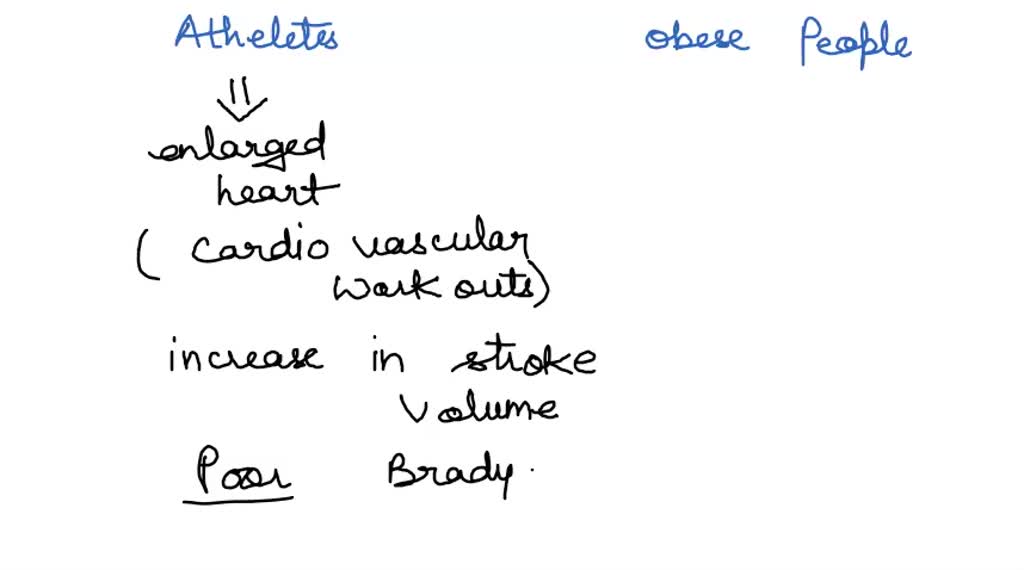 Atheletes obese People
enlarged
heart
( cardio vascular
work outs)
increase in stroke
volume
Poor Brady